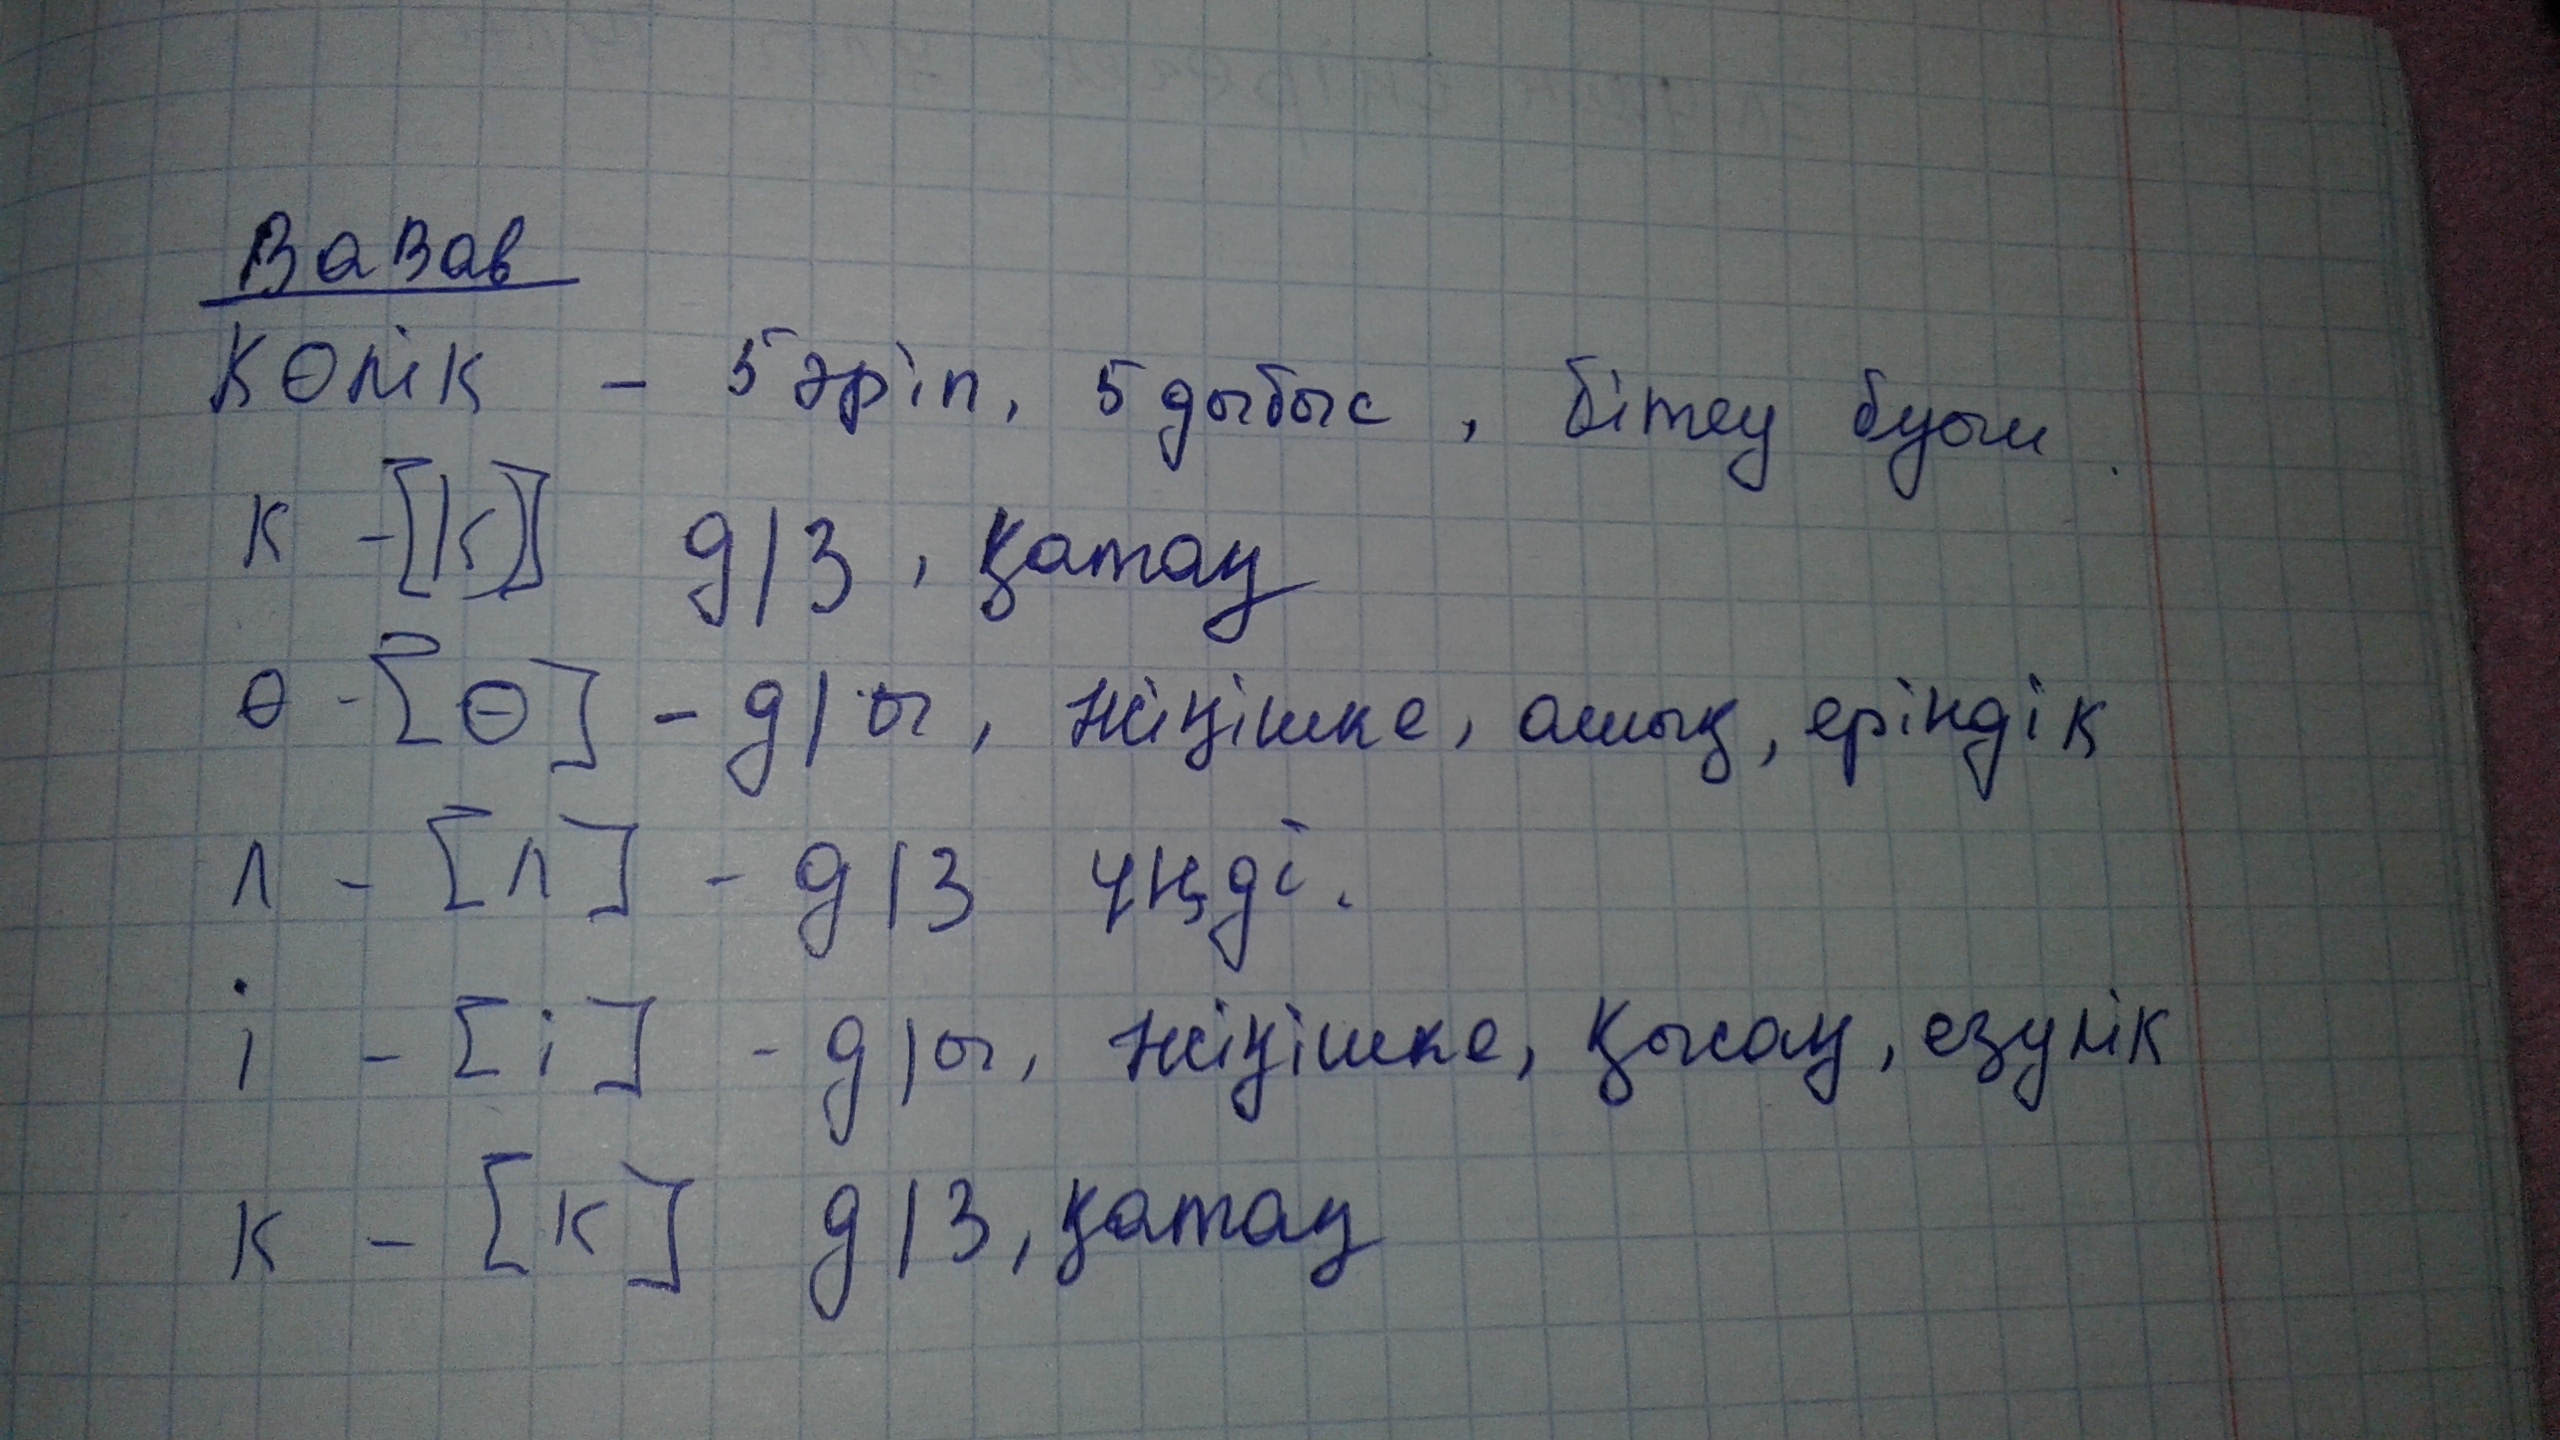 ВаВав
Көлік - 5 әріп, 5 дыбыс, бітеу буын.
к -[к] д/з, қатаң
ө -[ө] - д/ы, жіңішке, ашық, еріндік
л - [л] - д/з үнді.
і - [і] - д/ы, жіңішке, қысаң, езулік
к - [к] д/з, қатаң